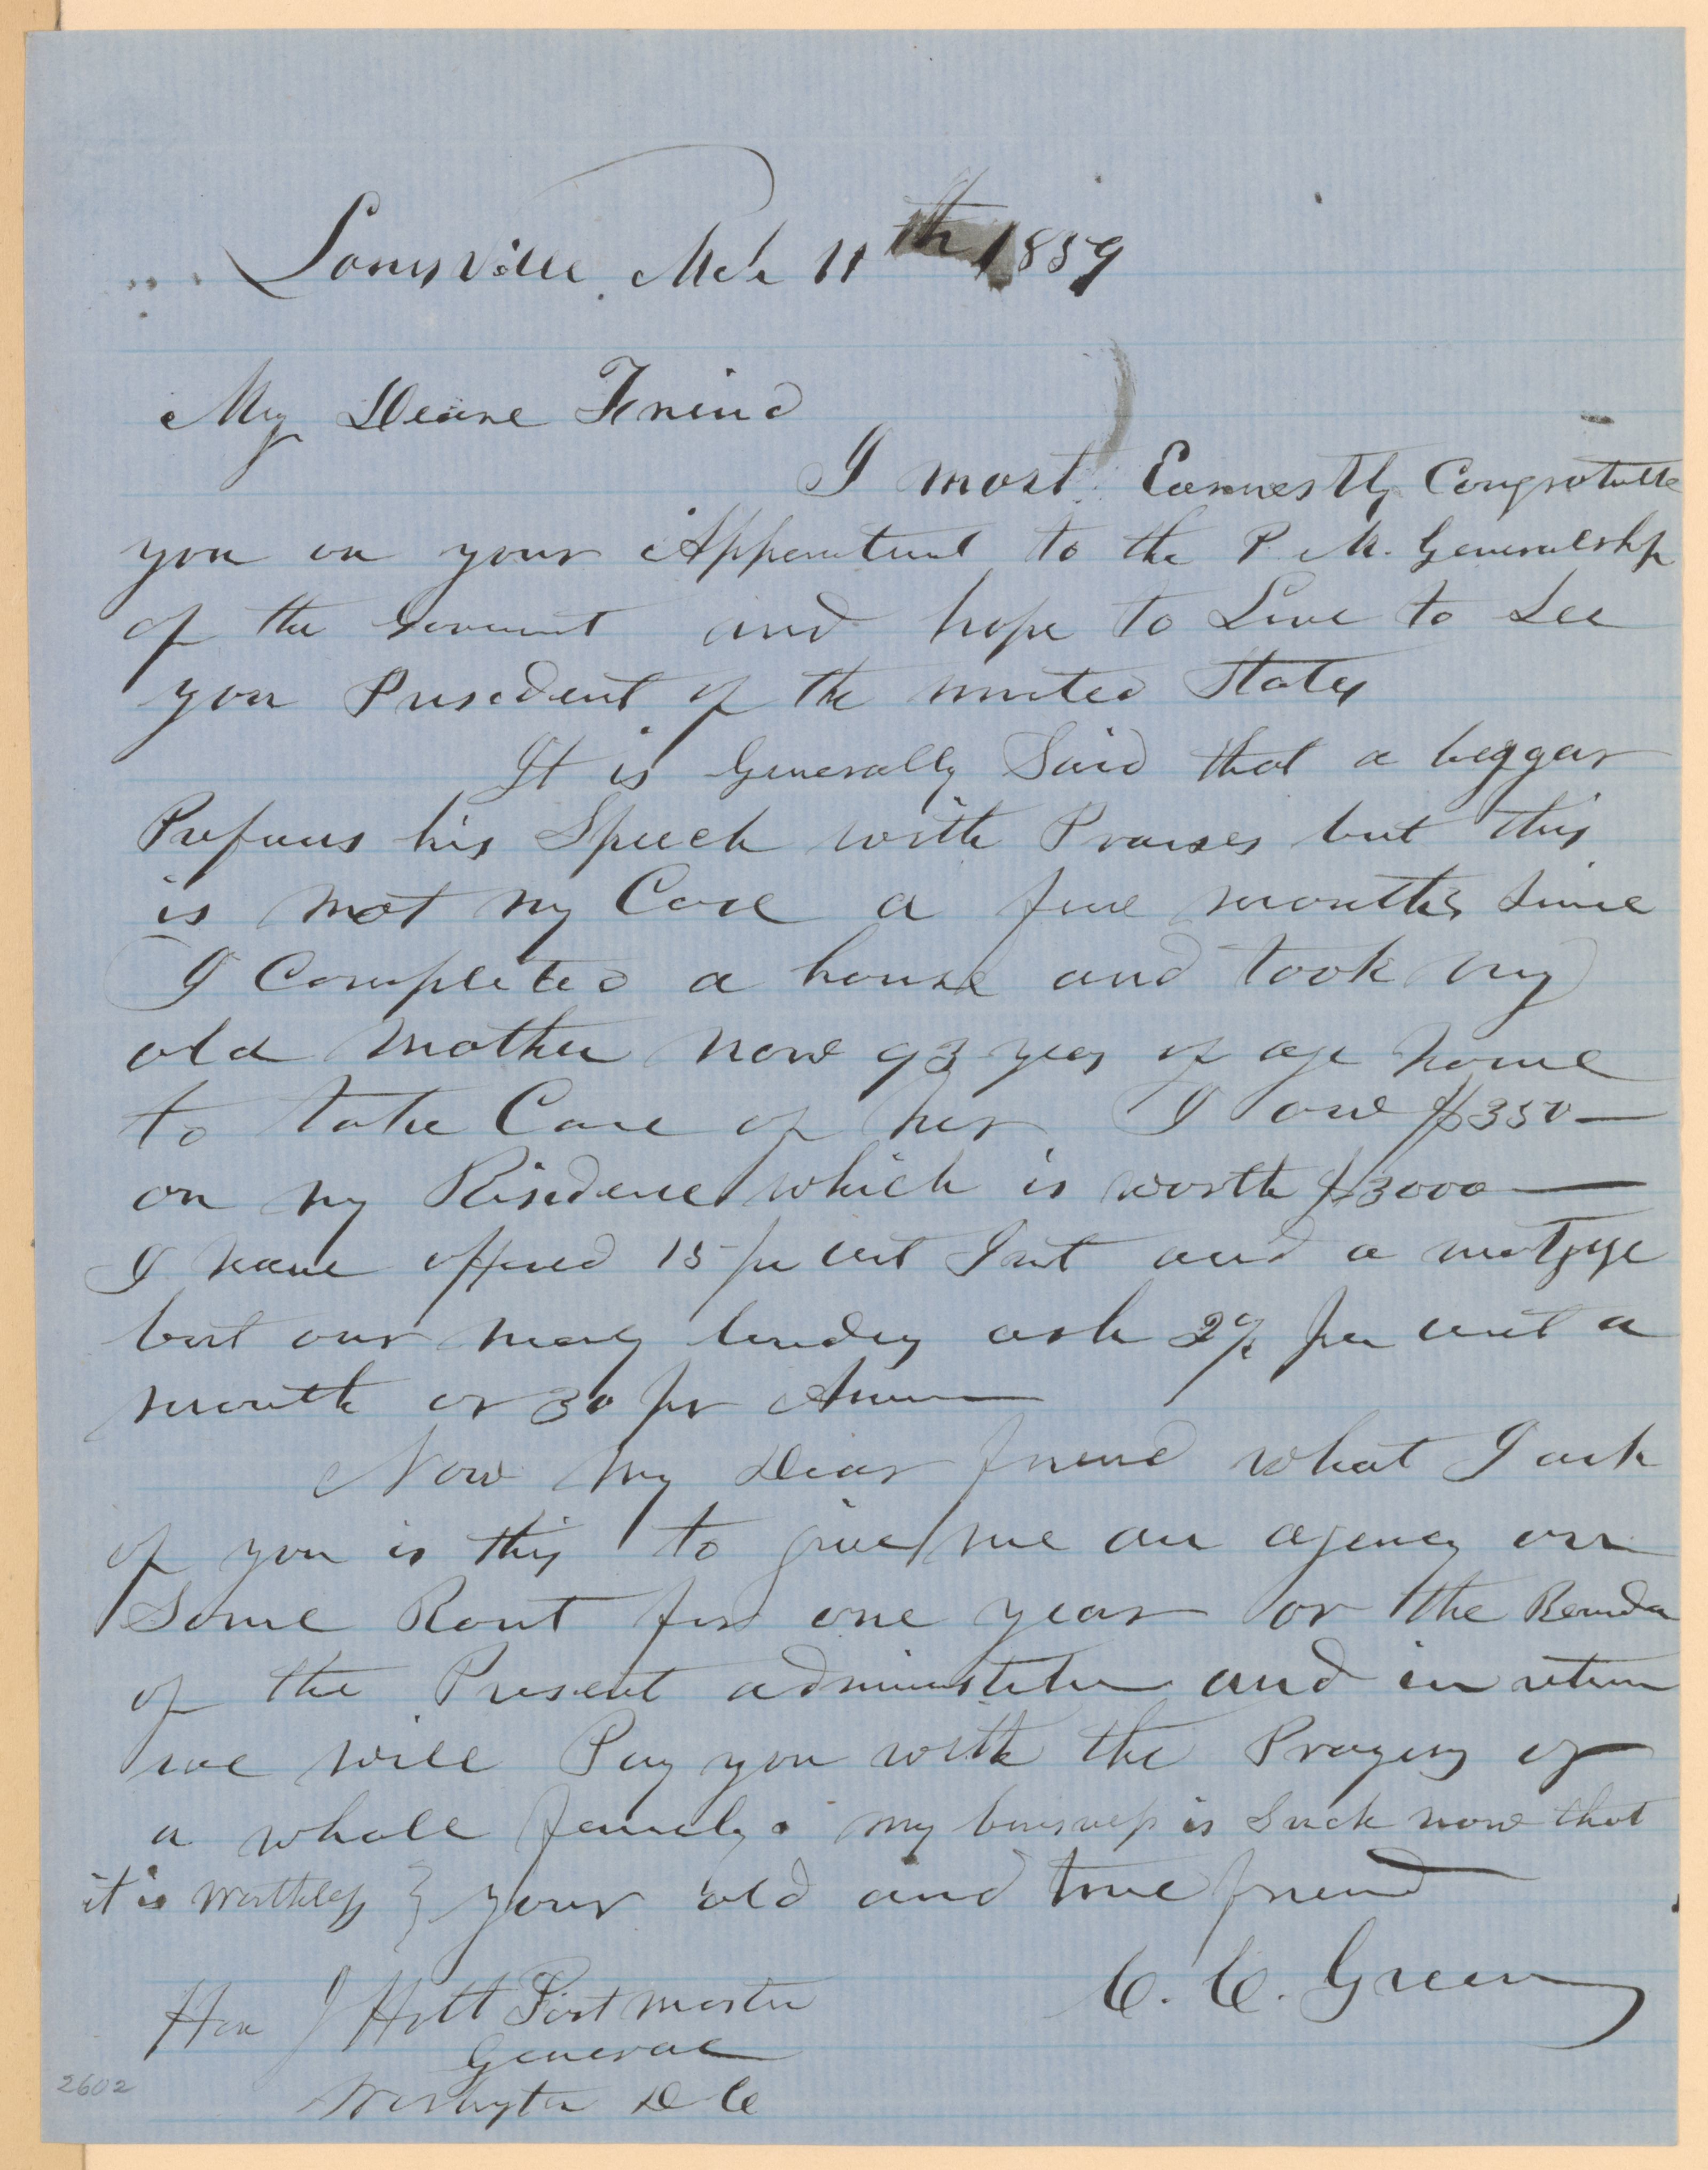 Louisville Mch 11th 1859
My Deare Friend
I most Earnestly Congratulte
you on your Appontment to the P. M. Generalship
of the Goverment and hope to Live to See
you President of the united States
It is Generally Said that a beggar
Prefaces his Speech with Praises but this
is not my Case a few months Since
I Completed a house and took my
old mother now 93 years of age home
to take Care of her I owe $350—
on my Residence which is worth $3000—
I have offered 15 per cent Int and a mortgage
but our mony lenders ask 2% per cent a
month or 30 pr Annum
Now my Dear friend what I ask
of you is this to give me an agency on
Some Rout for one year or the Remda
of the Present administration and in return
we will Pay you with the Prayers of
a whole family. my business is Such now that
it is Worthless } your old and true friend
C. C. Green
Hon J Holt Post master
General
Washington D C
2602